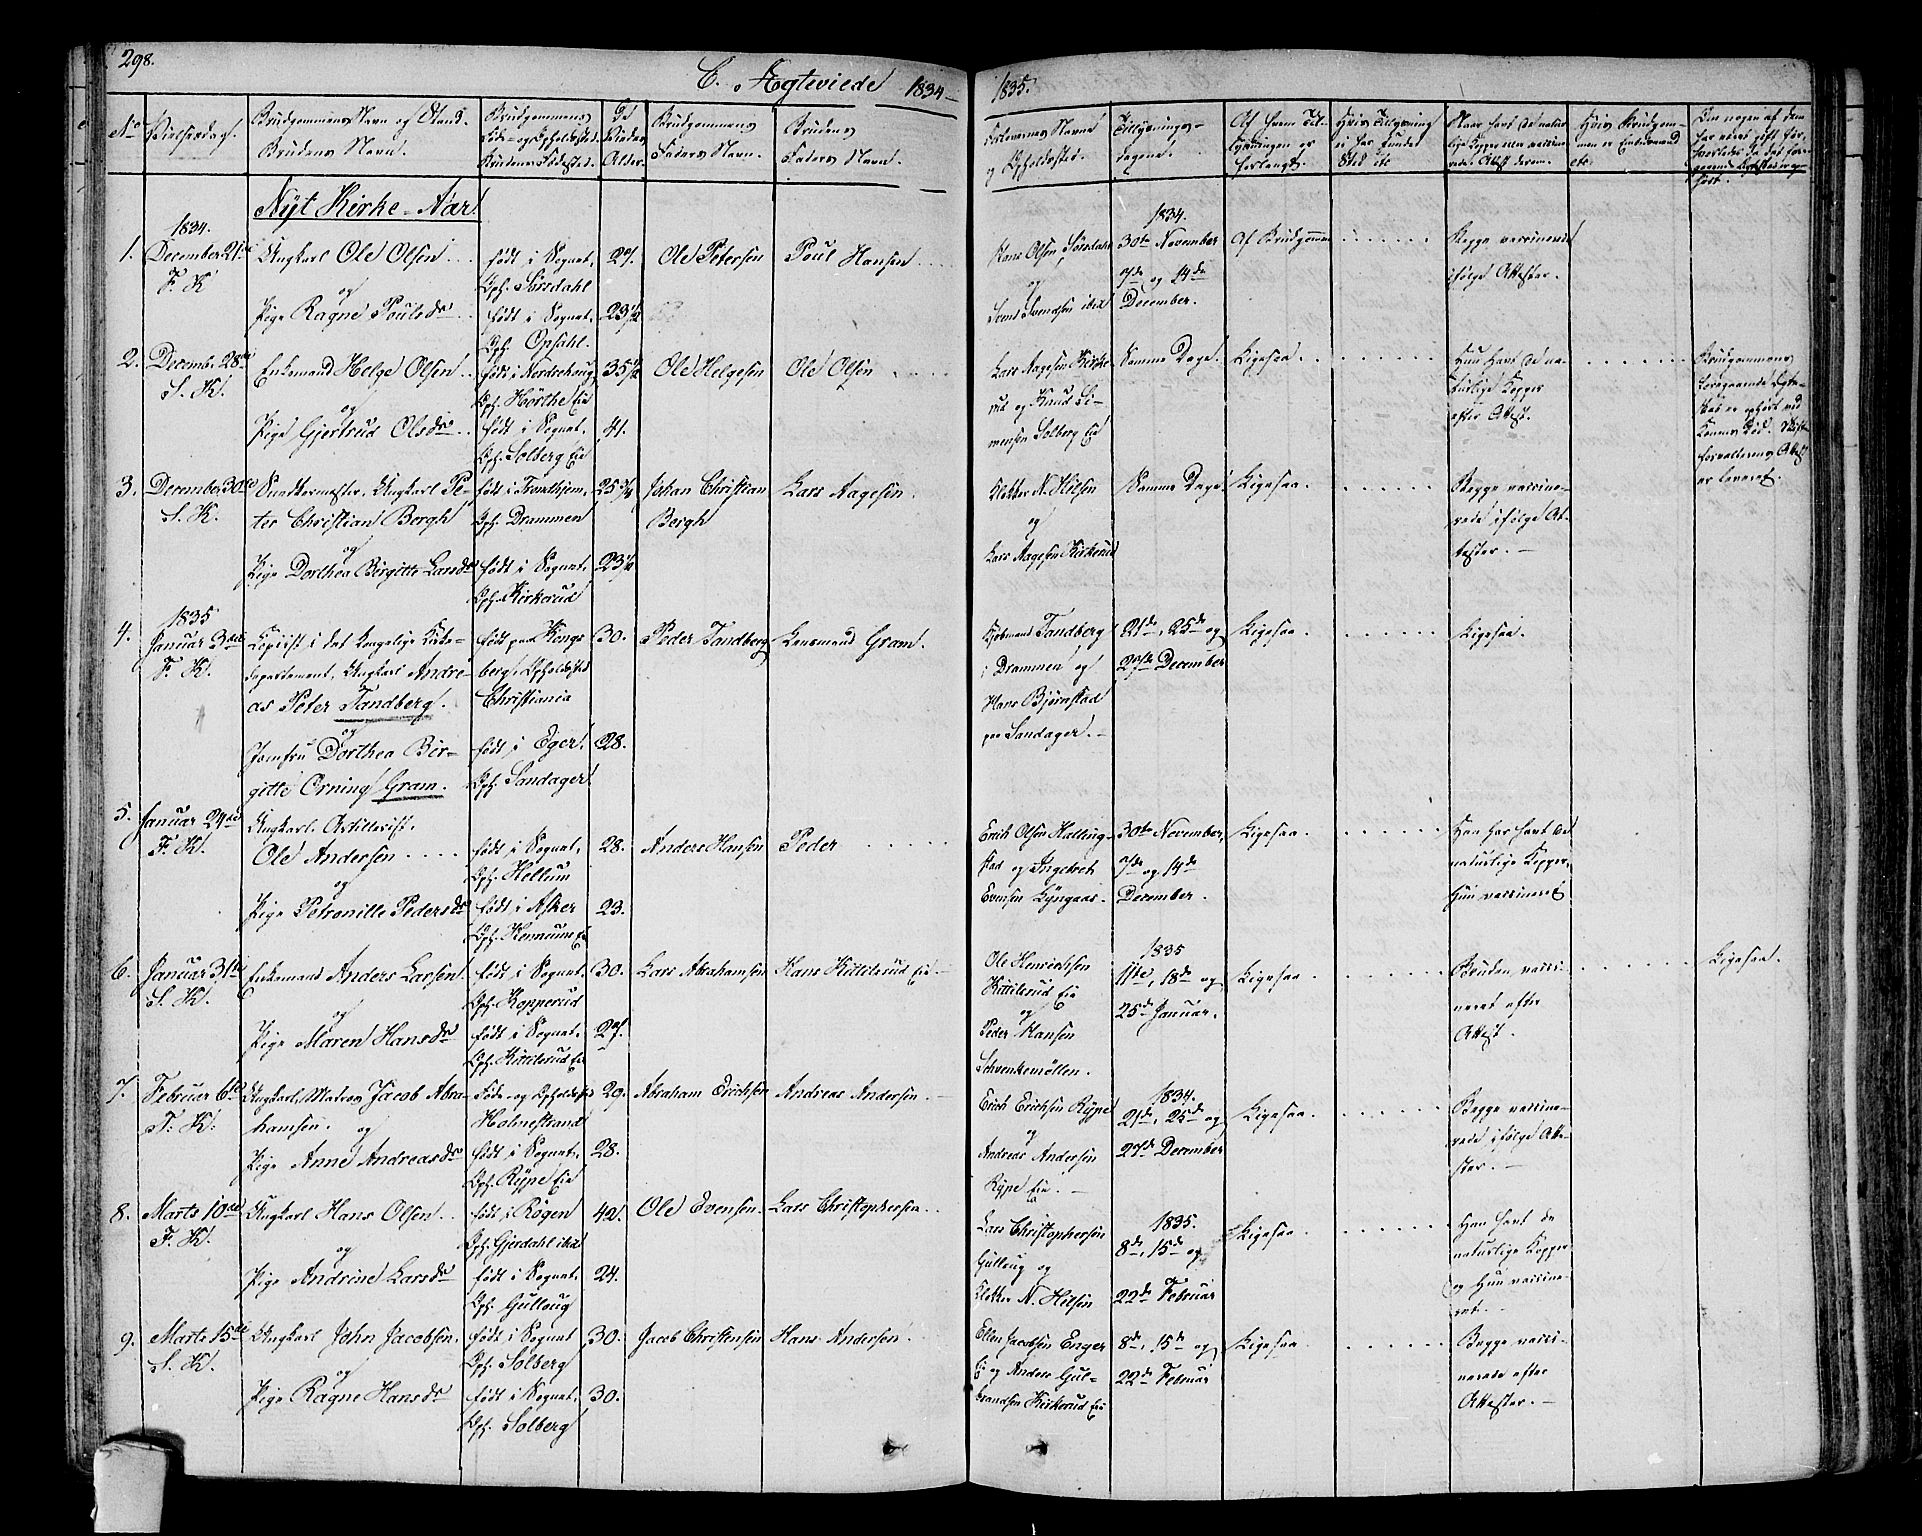 298.
C. Ægteviede 1834 – 1835.
No Vielsesdag.
Brudgommens Navn og Stand.
Brudens Navn.
Brudgommens
Føde- og Opholdssted.
Brudens Fødested.
De
Viedes
Alder.
Brudgommens
Faders Navn.
Brudens
Faders Navn.
Forlovernes Navne
og Opholdssted.
Tillysnings-
dagene.
Af hvem Til-
lysningen er
forlangt.
Hvis Tillysning
ei har fundet
Sted etc
Naar havt de natur-
lige Kopper eller vaccine-
rede. Attest derom.
Hvis Brudgom-
men er Embedsmand
etc.
Om nogen af dem
har været gift før,
Nyt Kirke-Aar.
1834.
1. December 21de
F. K.
Ungkarl Ole Olsen ...
og
Pige Ragne Poulsdr ..
født i Sognet.
Oph. Sørsdahl
født i Sognet.
Oph. Opsahl.
27.
23 1/2
Ole Petersen
Poul Hansen ....
Hans Olsen Sørsdahl
og
Svend Svendsen ibid
1834.
30te November
7de og 14de
December.
Af Brudgommen
Begge vaccinerede
ifølge Attester.
2. December 28de
S. K.
Enkemand Helge Olsen ..
og
Pige Gjertrud Olsdr ..
født i Nordrehoug
Oph. Hørthe Eie
født i Sognet.
Oph. Solberg Eie
35 1/2
41.
Ole Helgesen
Ole Olsen ....
Lars Aagesen Kirke-
rud og Knud Si-
mensen Solberg Eie
Samme Dage.
Ligesaa.
Hun havt de na-
turlige Kopper
efter Attest.
Brudgommens
foregaaende Egte-
skab er ophørt ved
Konens Død. Skifte-
forvalterens Attest
er leveret.
3. December 30te
S. K.
Ungkarl Pe-
ter Christian Borgh
og
Pige Dorthea Birgitte Larsdr
født i Trondhjem,
Oph. Drammen
født i Sognet.
Oph. Kirkerud
25 3/4
23 1/2
Johan Christian
Borgh
Lars Aagesen.
Klokker N. Hilsen
og
Lars Aagesen Kirkerud
Samme Dage.
Ligesaa.
Begge vaccine-
rede ifølge At-
tester. –
1835
4. Januar 3die
F. K.
Copiist i det Kongelige Kirke-
departement, Ungkarl Andre-
as Peter Tandberg.
og
Jomfru Dorthea Bir-
gitte Orning Gram.
født paa Kongs-
berg. Opholdssted
Christiania
født i Eger.
Oph. Sandager.
30.
28.
Peder Tandberg
Lensmand Gram.
Kjøbmand Tandberg
i Drammen og
Hans Bjørnstad
paa Sandager. –
21de, 25de og
27de December
Ligesaa
Ligesaa.
5. Januar 29de
F. K.
Ungkarl. Artillerist.
Ole Andersen ....
og
Pige Petronille Pedersdr
født i Sognet.
Oph. Hellum
født i Asker
28.
23.
Anders Hansen
Peder ......
Erich Olsen Halling-
stad og Ingebret
Evensen Lyngaas.
30te November,
7de og 14de
December.
Ligesaa.
Han har havt de
naturlige Kopper,
Hun vaccineret
6. Januar 31te
S. K.
Enkemand Anders Larsen.
og
Pige Maren Hansdr
født i Sognet.
Oph. Kopperud
født i Sognet.
Oph. Kittilsrud Eie
30.
27.
Lars Abrahamsen
Hans Kittelsrud Eie –
Ole Henrichsen
Kittilsrud Eie
og
Peder Hansen
Schvenkemøllen.
1835
11te, 18de og
25de Januar.
Ligesaa
Bruden vacci-
neret efter
Attest.
Ligesaa.
7. Februar 6te
F. K.
Ungkarl, Matros Jacob Abra-
hamsen. og
Pige Anne Andreasdr
Føde- og Opholdssted
Holmestrand
født i Sognet.
Oph. Rype Eie
29.
28.
Abraham Erichsen
Andreas Andersen. –
Erich Erichsen Rype
og
Andreas Andersen
Rype Eie. –
1834.
21de, 25de og
27de December
Ligesaa
Begge vaccine-
rede ifølge Atte-
ster. –
8. Marts 10de
F. K.
Ungkarl Hans Olsen ..
og
Pige Andrine Larsdr
født i Røgen
Oph. Gjerdahl ibid
født i Sognet.
Oph. Gulloug
42.
24.
Ole Evensen.
Lars Christophersen...
Lars Christophersen
Gulloug og
Klokker N. Hilsen
1835.
8de, 15de og
22de Februar
Ligesaa
Han havt de
naturlige Kopper
og Hun vaccine-
ret. –
9. Marts 15de
S. K.
Ungkarl John Jacobsen.
og
Pige Ragne Hansdr
født i Sognet
Oph. Solberg
født i Sognet.
Oph. Solberg
30.
30.
Jacob Christensen
Hans Andersen.
Ellen Jacobsen Enger
Ei og Anders Gul-
brandsen Kirkerud Eie
8de, 15de og
22de Februar
Ligesaa.
Begge vacci-
nerede efter
Attester. –